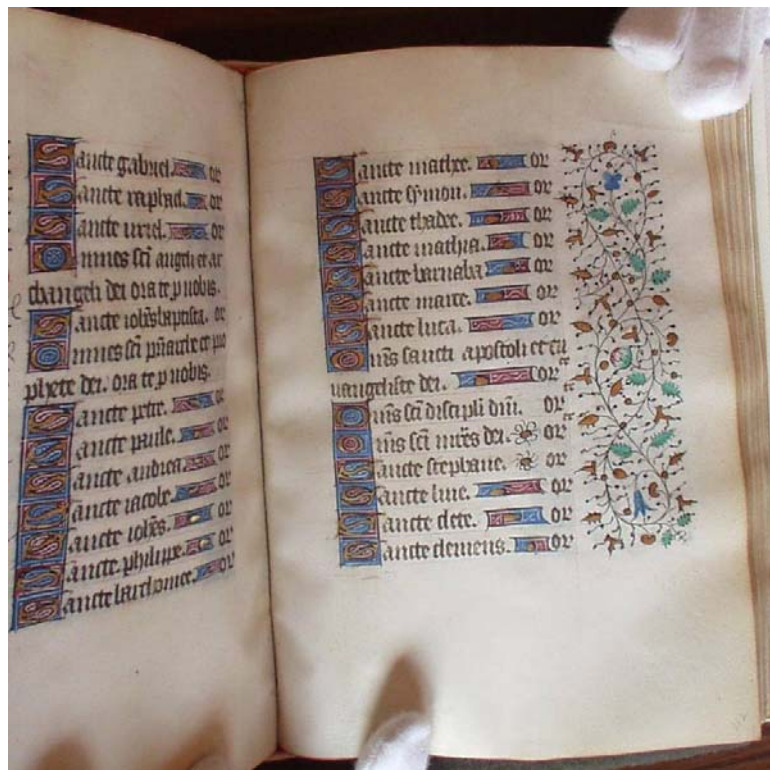 Sancte gabriel. or
Sancte raphael. or
Sancte uriel. or
Omnes sci angeli et ar
changeli dei orate p nobis.
Sancte iohes baptista. or
Omnes sci priarche et pro
phete dei. orate p nobis.
Sancte petre. or
Sancte paule. or
Sancte andrea or
Sancte iacobe. or
Sancte iohes. or
Sancte philippe. or
Sancte bartholomee. or
Sancte mathee. or
Sancte symon. or
Sancte thadee. or
Sancte mathia. or
Sancte barnaba or
Sancte marce. or
Sancte luca. or
Oms sancti apostoli et eu
uangeliste dei. or
Oms sci discipli dni. or
Oms sci dei. or
Sancte stephane. or
Sancte line. or
Sancte clete. or
Sancte clemens. or